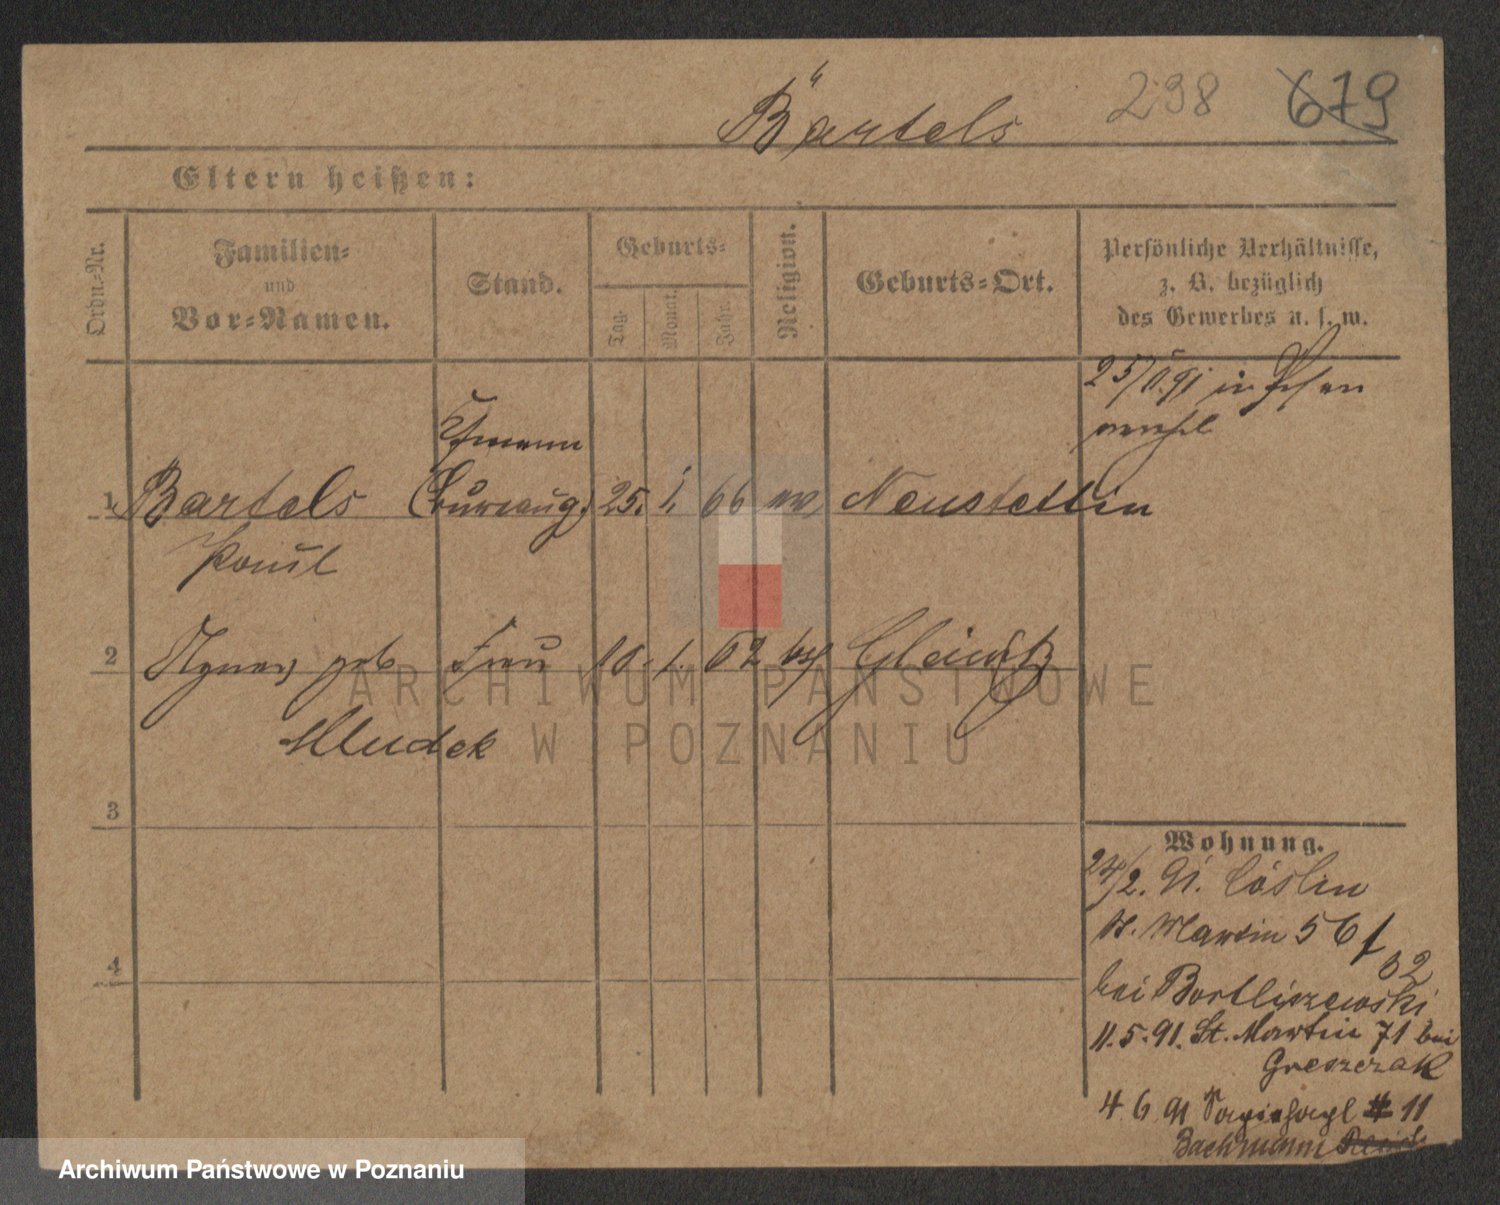 Bartels 298 679
Eltern heißen:
Ordn.-Nr.
Familien-
und
Vor-Namen.
Stand.
Geburts-
Tag.
Monat.
Jahr.
Religion.
Geburts-Ort.
Persönliche Verhältnisse,
z. B. bezüglich
des Gewerbes u. s. w.
25/5.91 in Posen
1 Bartels 25. 1. 66 ev, Neustettin
Paul
2 Agnes geb Frau 10. 1. 62 Gleiwitz
Mludek
3
4
Wohnung.
24/2. 91. Cöslin
St. Martin 56
bei Bortliszewski
11.5.91. St. Martin 71 bei
Greszczak
4 6 91 11
Bachmann
ARCHIWUM PAŃSTWOWE
W POZNANIU
Archiwum Państwowe w Poznaniu